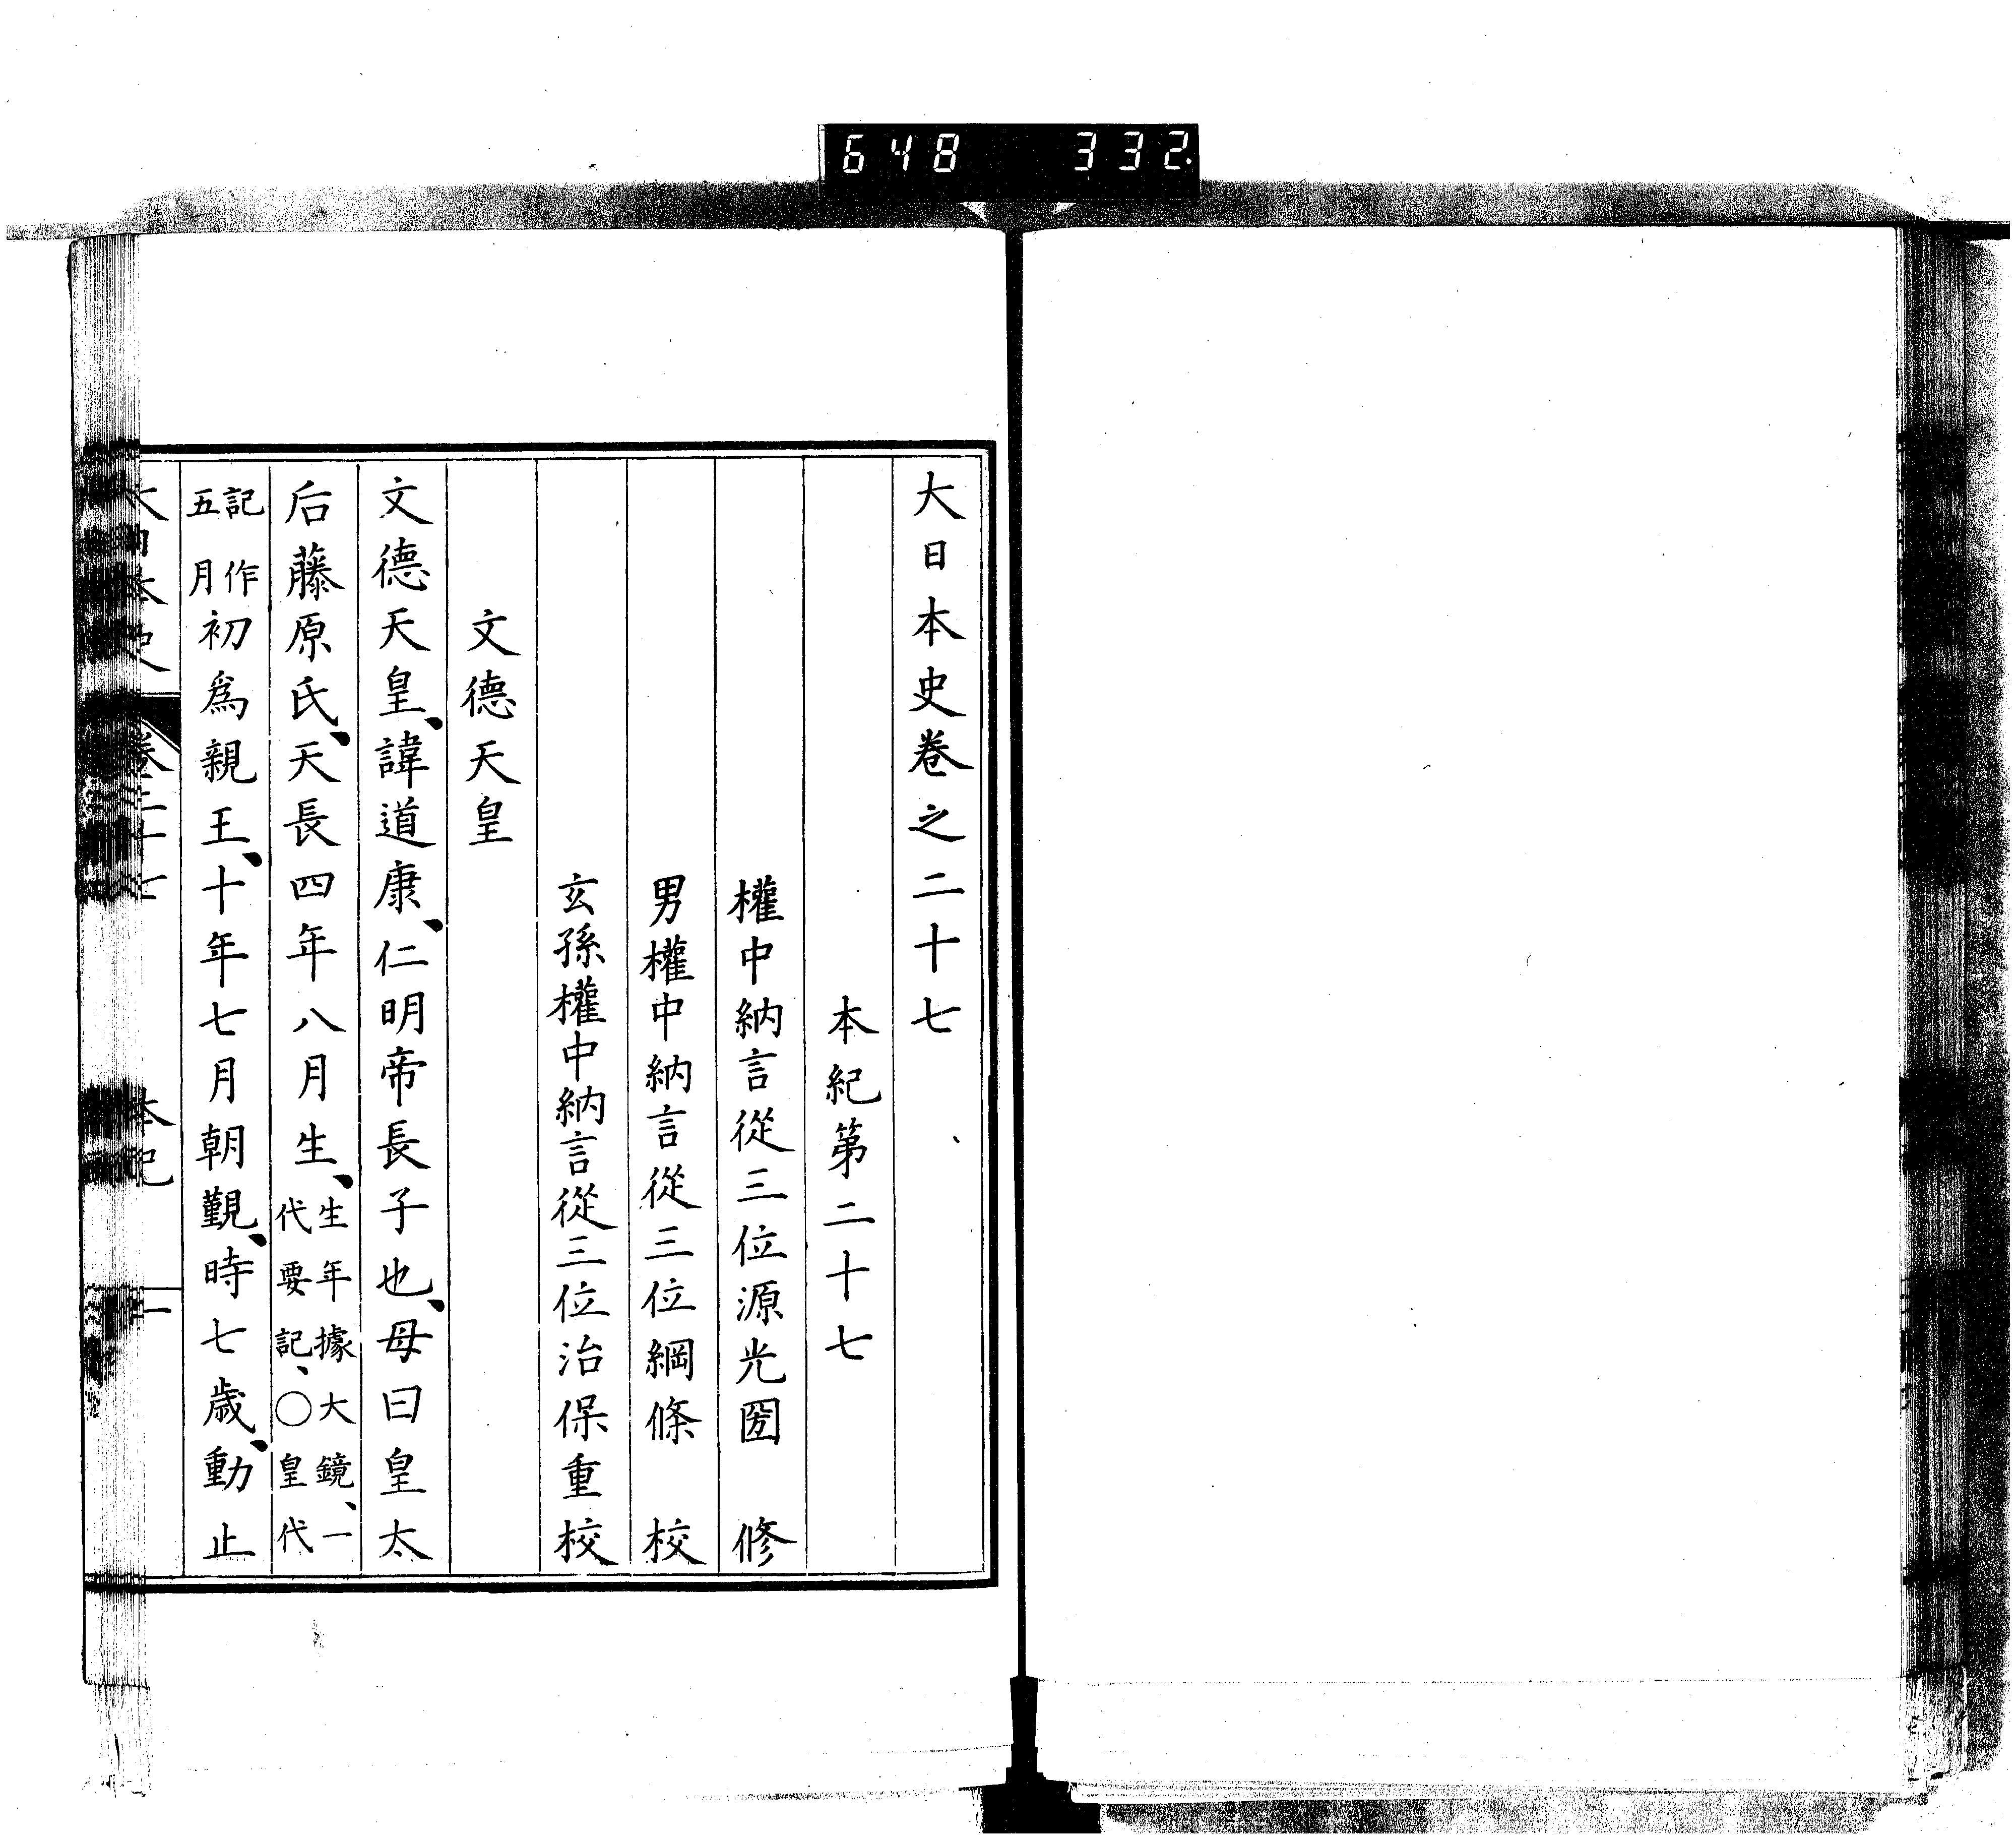 648 332
大日本史卷之二十七
本紀第二十七
權中納言從三位源光圀 修
男權中納言從三位綱條 校
玄孫權中納言從三位治保重校
文德天皇
文德天皇、諱道康、仁明帝長子也、母曰皇太
后藤原氏、天長四年八月生、生年據大鏡、一代要記、〇皇代
記作五月初爲親王、十年七月朝覲、時七歲、動止
大日本史 卷二十七 本紀 一